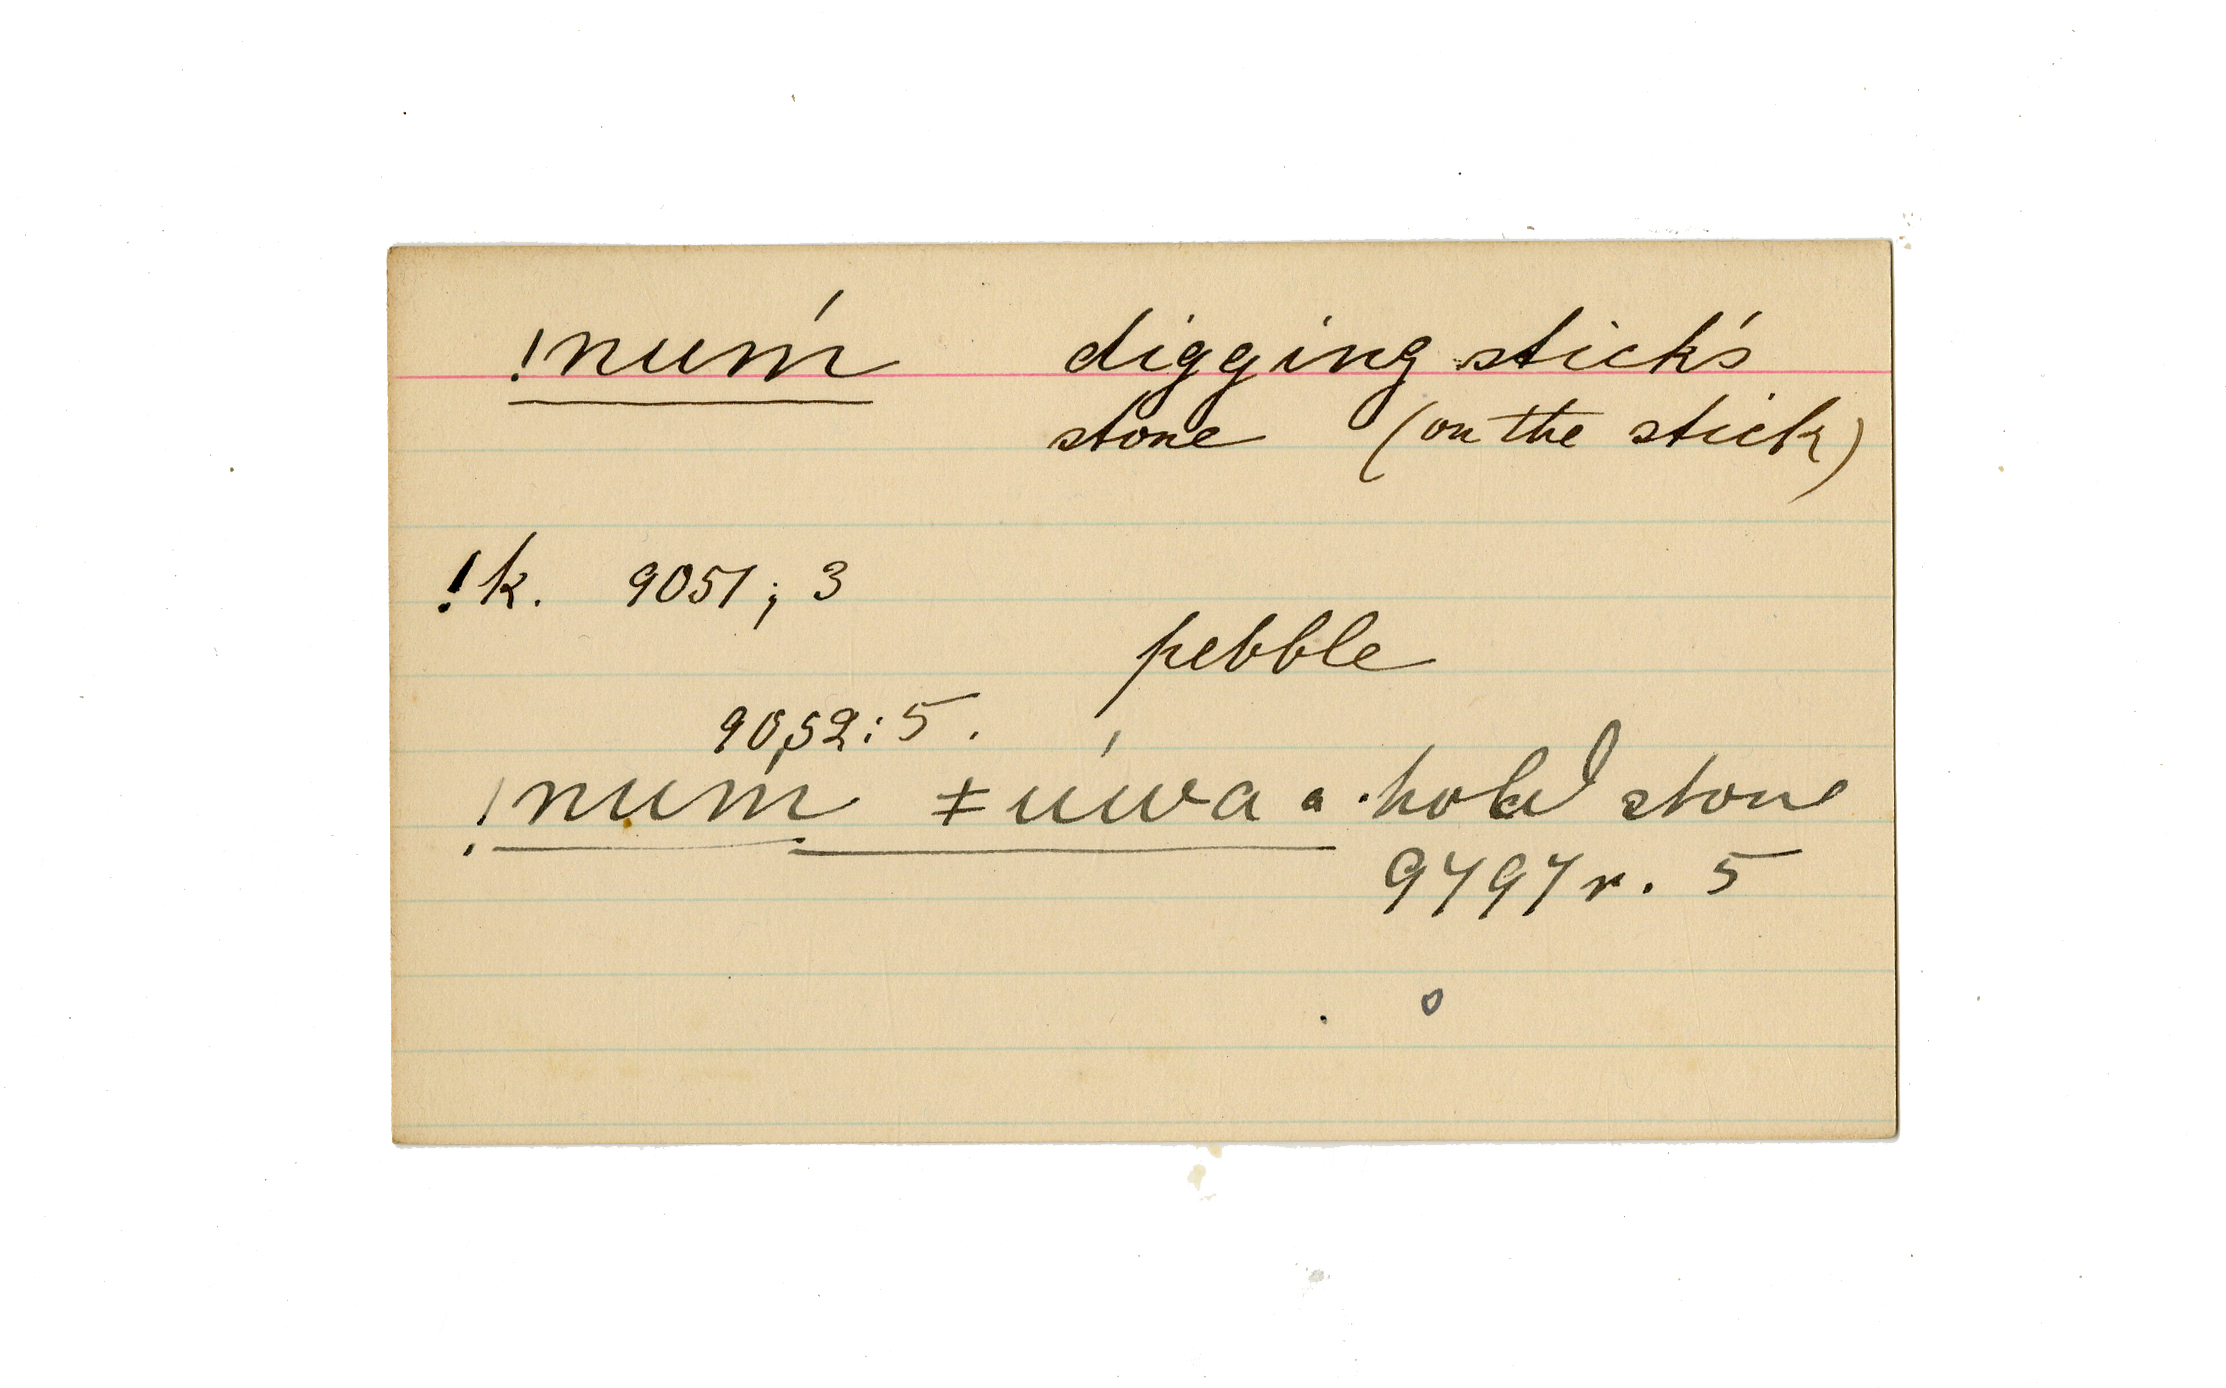 !nuḿ digging stick's
stone (on the stick)
!k. 9051; 3
pebble
9052: 5.
!nuḿ ǂúwa hold stone
9797 r. 5